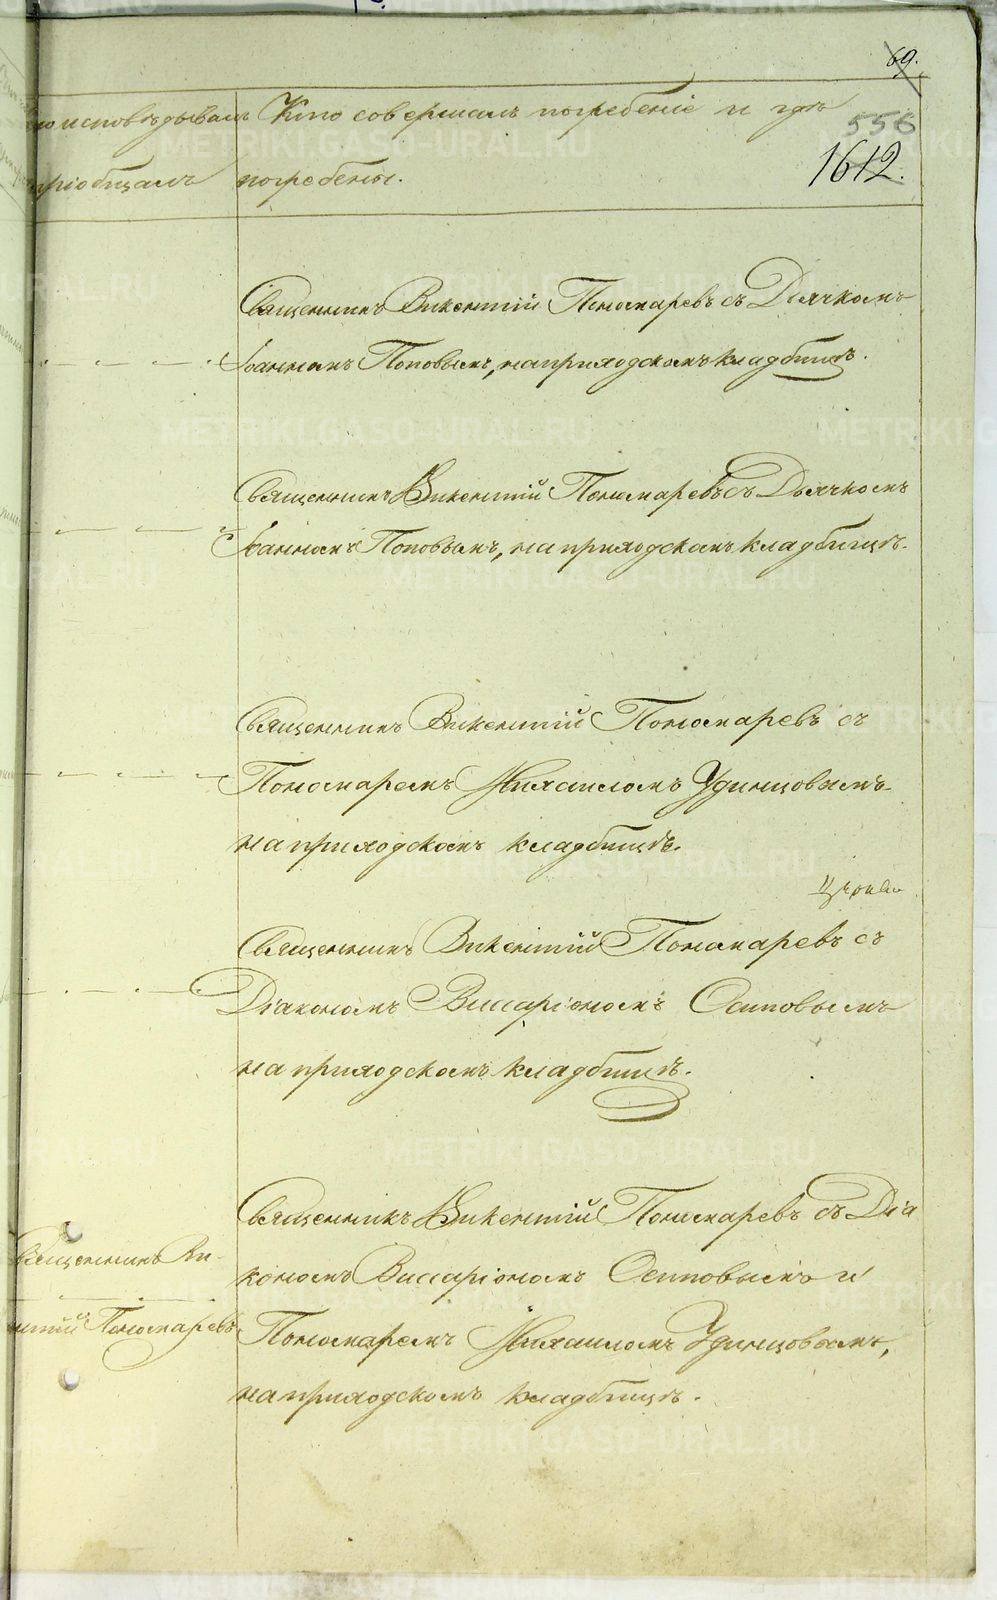 69.
556
1612.
то исповѣдывалъ Кто совершалъ погребеніе и гдѣ
пріобщалъ погребены.
Священникъ Викентій Пономаревъ съ Дьячкомъ
Іоанномъ Поповымъ, на приходскомъ кладбищѣ.
Священникъ Викентій Пономаревъ съ Дьячкомъ
Іоанномъ Поповымъ, на приходскомъ кладбищѣ.
Священникъ Викентій Пономаревъ съ
Пономаремъ Михаиломъ Удинцовымъ
на приходскомъ кладбищѣ.
Священникъ Викентій Пономаревъ съ
Діакономъ Виссаріономъ Осиповымъ
на приходскомъ кладбищѣ.
Священникъ Викентій Пономаревъ съ Діа
кономъ Виссаріономъ Осиповымъ и
Пономаремъ Михаиломъ Удинцовымъ,
на приходскомъ кладбищѣ.
Священникъ Ви-
нтій Пономаревъ
METRIKI.GASO-URAL.RU